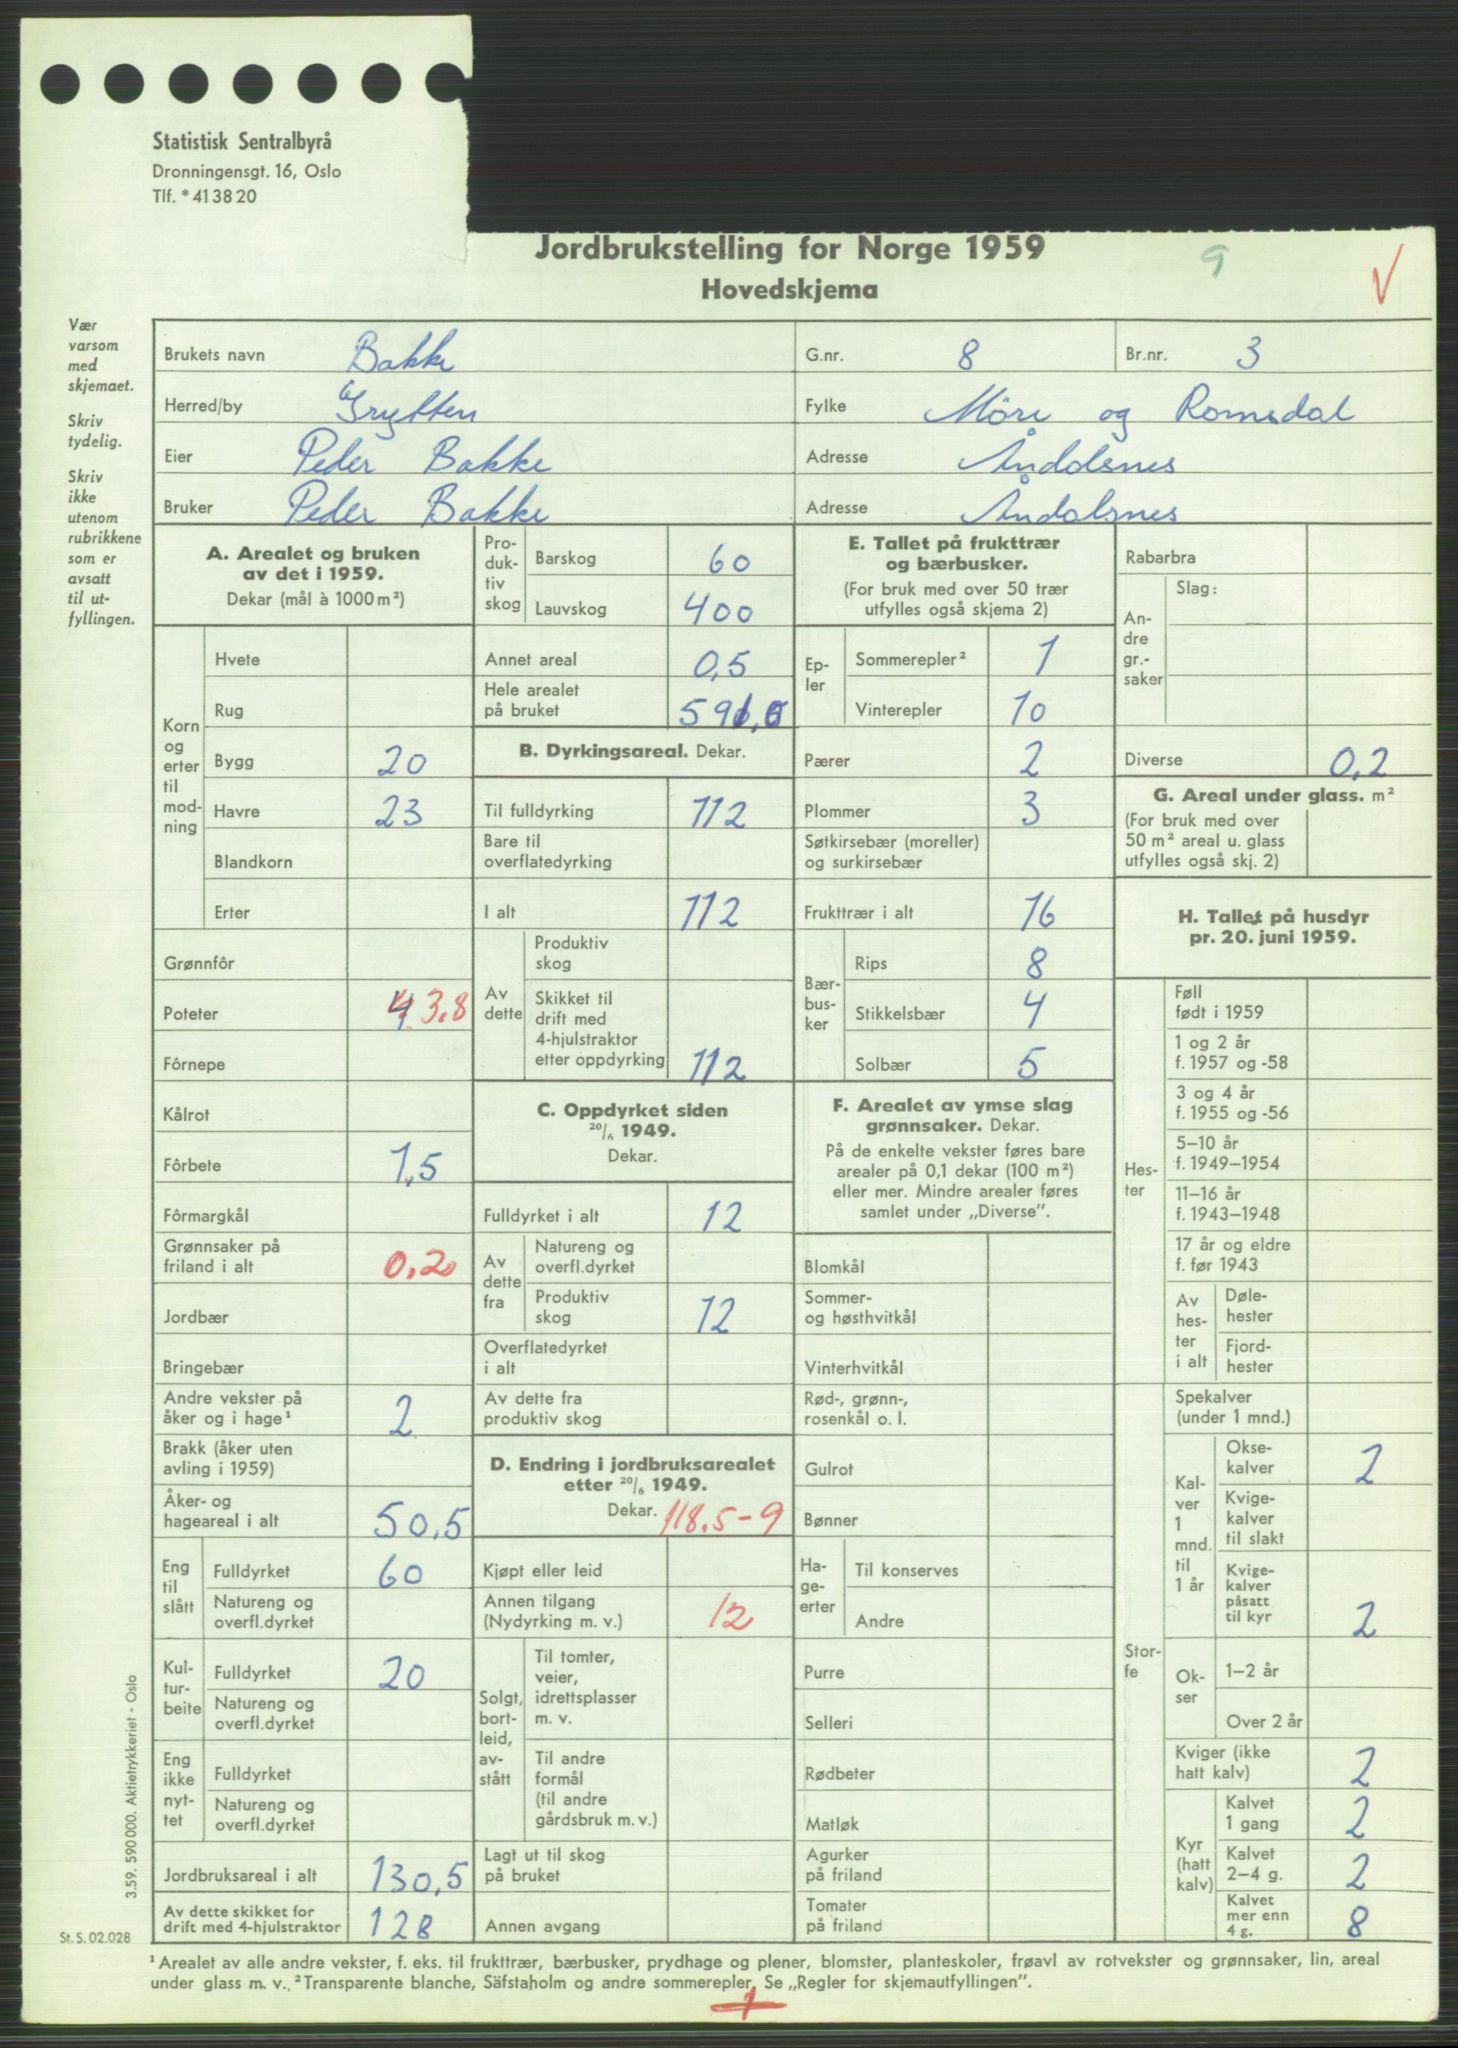 Statistisk Sentralbyrå
Dronningensgt. 16, Oslo
Tlf. * 41 38 20
Jordbrukstelling for Norge 1959
Hovedskjema
9
Vær
varsom
med
skjemaet.
Skriv
tydelig.
Skriv
ikke
utenom
rubrikkene
som er
avsatt
til ut-
fyllingen.
Brukets navn Bakke G.nr. 8 Br.nr. 3
Herred/by Grytten Fylke Möre og Romsdal
Eier Peder Bakke Adresse Åndalsnes
Bruker Peder Bakke Adresse Åndalsnes
A. Arealet og bruken
av det i 1959.
Dekar (mål à 1000 m²)
Korn
og
erter
til
mod-
ning
Hvete
Rug
Bygg 20
Havre 23
Blandkorn
Erter
Grønnfôr
Poteter 4 3,8
Fôrnepe
Kålrot
Fôrbete 1,5
Fôrmargkål
Grønnsaker på
friland i alt 0,2
Jordbær
Bringebær
Andre vekster på
åker og i hage¹ 2
Brakk (åker uten
avling i 1959)
Åker- og
hageareal i alt 50,5
Eng
til
slått
Fulldyrket 60
Natureng og
overfl.dyrket
Kul-
tur-
beite
Fulldyrket 20
Natureng og
overfl.dyrket
Eng
ikke
nyt-
tet
Fulldyrket
Natureng og
overfl.dyrket
Jordbruksareal i alt 130,5
Av dette skikket for
drift med 4-hjulstraktor 128
Pro-
duk-
tiv
skog
Barskog 60
Lauvskog 400
Annet areal 0,5
Hele arealet
på bruket
B. Dyrkingsareal. Dekar.
Til fulldyrking 112
Bare til
overflatedyrking
I alt 112
Av
dette
Produktiv
skog
Skikket til
drift med
4-hjulstraktor
etter oppdyrking 112
C. Oppdyrket siden
20/6 1949.
Dekar.
Fulldyrket i alt 12
Av
dette
fra
Natureng og
overfl.dyrket
Produktiv
skog 12
Overflatedyrket
i alt
Av dette fra
produktiv skog
D. Endring i jordbruksarealet
etter 20/6 1949.
Dekar. 118.5-9
Kjøpt eller leid
Annen tilgang
(Nydyrking m. v.) 12
Solgt,
bort-
leid,
av-
stått
Til tomter,
veier,
idrettsplasser
m. v.
Til andre
formål
(til andre
gårdsbruk m. v.)
Lagt ut til skog
på bruket
Annen avgang
E. Tallet på frukttrær
og bærbusker.
(For bruk med over 50 trær
utfylles også skjema 2)
Ep-
ler
Sommerepler² 1
Vinterepler 10
Pærer 2
Plommer 3
Søtkirsebær (moreller)
og surkirsebær
Frukttrær i alt 16
Bær-
bus-
ker
Rips 8
Stikkelsbær 4
Solbær 5
F. Arealet av ymse slag
grønnsaker. Dekar.
På de enkelte vekster føres bare
arealer på 0,1 dekar (100 m²)
eller mer. Mindre arealer føres
samlet under „Diverse”.
Blomkål
Sommer-
og høsthvitkål
Vinterhvitkål
Rød-, grønn-,
rosenkål o. l.
Gulrot
Bønner
Ha-
ge-
erter
Til konserves
Andre
Purre
Selleri
Rødbeter
Matløk
Agurker
på friland
Tomater
på friland
Rabarbra
An-
dre
gr.-
saker
Slag:
Diverse 0,2
G. Areal under glass. m²
(For bruk med over
50 m² areal u. glass
utfylles også skj. 2)
H. Tallet på husdyr
pr. 20. juni 1959.
Hes-
ter
Føll
født i 1959
1 og 2 år
f. 1957 og -58
3 og 4 år
f. 1955 og -56
5–10 år
f. 1949–1954
11–16 år
f. 1943–1948
17 år og eldre
f. før 1943
Av
hes-
ter
i alt
Døle-
hester
Fjord-
hester
Stor-
fe
Spekalver
(under 1 mnd.)
Kal-
ver
1
mnd.
til
1 år
Okse-
kalver 2
Kvige-
kalver
til slakt
Kvige-
kalver
påsatt
til kyr 2
Ok-
ser
1–2 år
Over 2 år
Kviger (ikke
hatt kalv) 2
Kyr
(hatt
kalv)
Kalvet
1 gang 2
Kalvet
2–4 g. 2
Kalvet
mer enn
4 g. 8
3.59. 590 000. Aktietrykkeriet - Oslo
St. S. 02.028
¹ Arealet av alle andre vekster, f. eks. til frukttrær, bærbusker, prydhage og plener, blomster, planteskoler, frøavl av rotvekster og grønnsaker, lin, areal
under glass m. v. ² Transparente blanche, Säfstaholm og andre sommerepler. Se „Regler for skjemautfyllingen”.
1